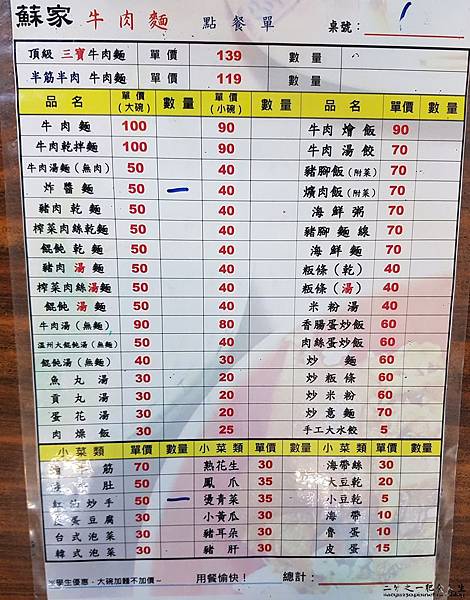 蘇家 牛肉麵 點餐單 桌號: 1
頂級 三寶 牛肉麵 單價 139 數量
半筋半肉 牛肉麵 單價 119 數量
品名 單價(大碗) 數量 單價(小碗) 數量 品名 單價 數量
牛肉麵 100 90 牛肉燴飯 90
牛肉乾拌麵 100 90 牛肉湯餃 70
牛肉湯麵(無肉) 50 40 豬腳飯(附菜) 70
炸醬麵 50 40 爌肉飯(附菜) 70
豬肉乾麵 50 40 海鮮粥 70
榨菜肉絲乾麵 50 40 豬腳麵線 70
餛飩乾麵 50 40 海鮮麵 70
豬肉湯麵 50 40 粄條(乾) 40
榨菜肉絲湯麵 50 40 粄條(湯) 40
餛飩湯麵 50 40 米粉湯 40
牛肉湯(無麵) 90 80 香腸蛋炒飯 60
溫州大餛飩湯(無麵) 50 40 肉絲蛋炒飯 60
餛飩湯(無麵) 40 30 炒麵 60
魚丸湯 30 20 炒粄條 60
貢丸湯 30 20 炒米粉 60
蛋花湯 30 20 炒意麵 70
肉燥飯 30 25 手工大水餃 5
小菜類 單價 數量 小菜類 單價 數量 小菜類 單價 數量
筋 70 熟花生 30 海帶絲 30
肚 50 鳳爪 35 大豆乾 20
紅油炒手 50 燙青菜 35 小豆乾 5
皮蛋豆腐 30 小黃瓜 30 海帶 10
台式泡菜 30 豬耳朵 30 魯蛋 10
韓式泡菜 30 豬肝 30 皮蛋 15
學生優惠,大碗加麵不加價~ 用餐愉快! 總計: